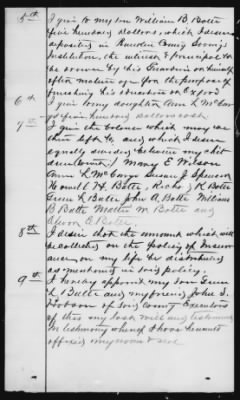 5th I give to my son William B. Botts
five hundred dollars, which I desire
deposited in County Savings
Institution, the interest & principal to
be drawn by his Guardian or himself
after mature age for the purpose of
finishing his education or
6th I give to my daughter Ann L McCargo
five hundred dollars cash.
7th I give the balance which may
then left to be, which I desire
equally divided between my
children (. Mary E Wilson
Ann L McCargo Susan J Spencer
Howell H. Botts, Richd. K Botts
Green L Botts John A. Botts William
B Botts Walter W. Botts and
E. Botts
8th I desire that the amount which will
be collected on the policy of Insur
ance on my life be distributed
as mentioned in said policy.
9th I hereby appoint my son Green
L Botts and my friend John T.
of said County Executors
of this my last will and testament
In testimony whereof I have hereunto
affixed my name & seal